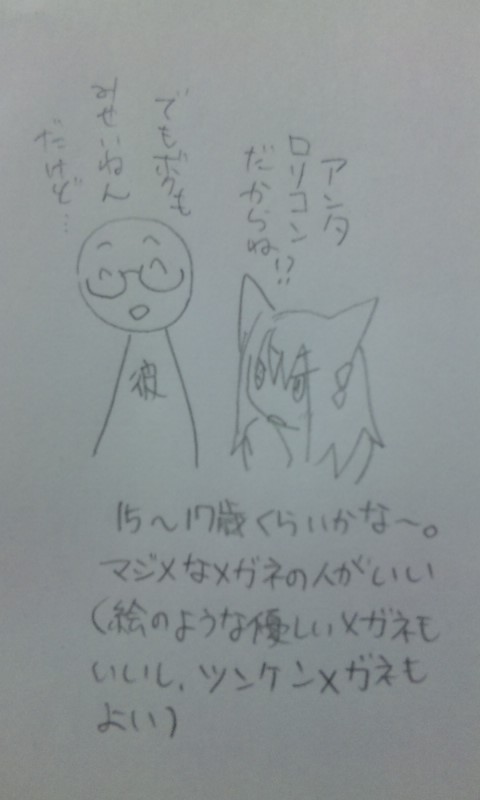 アンタ
ロリコン
だからね!?
でもボクも
みせいねん
だけど…
彼
15～17歳くらいかな～。
マジメなメガネの人がいい
(絵のような優しいメガネも
いいし、ツンケンメガネも
よい)